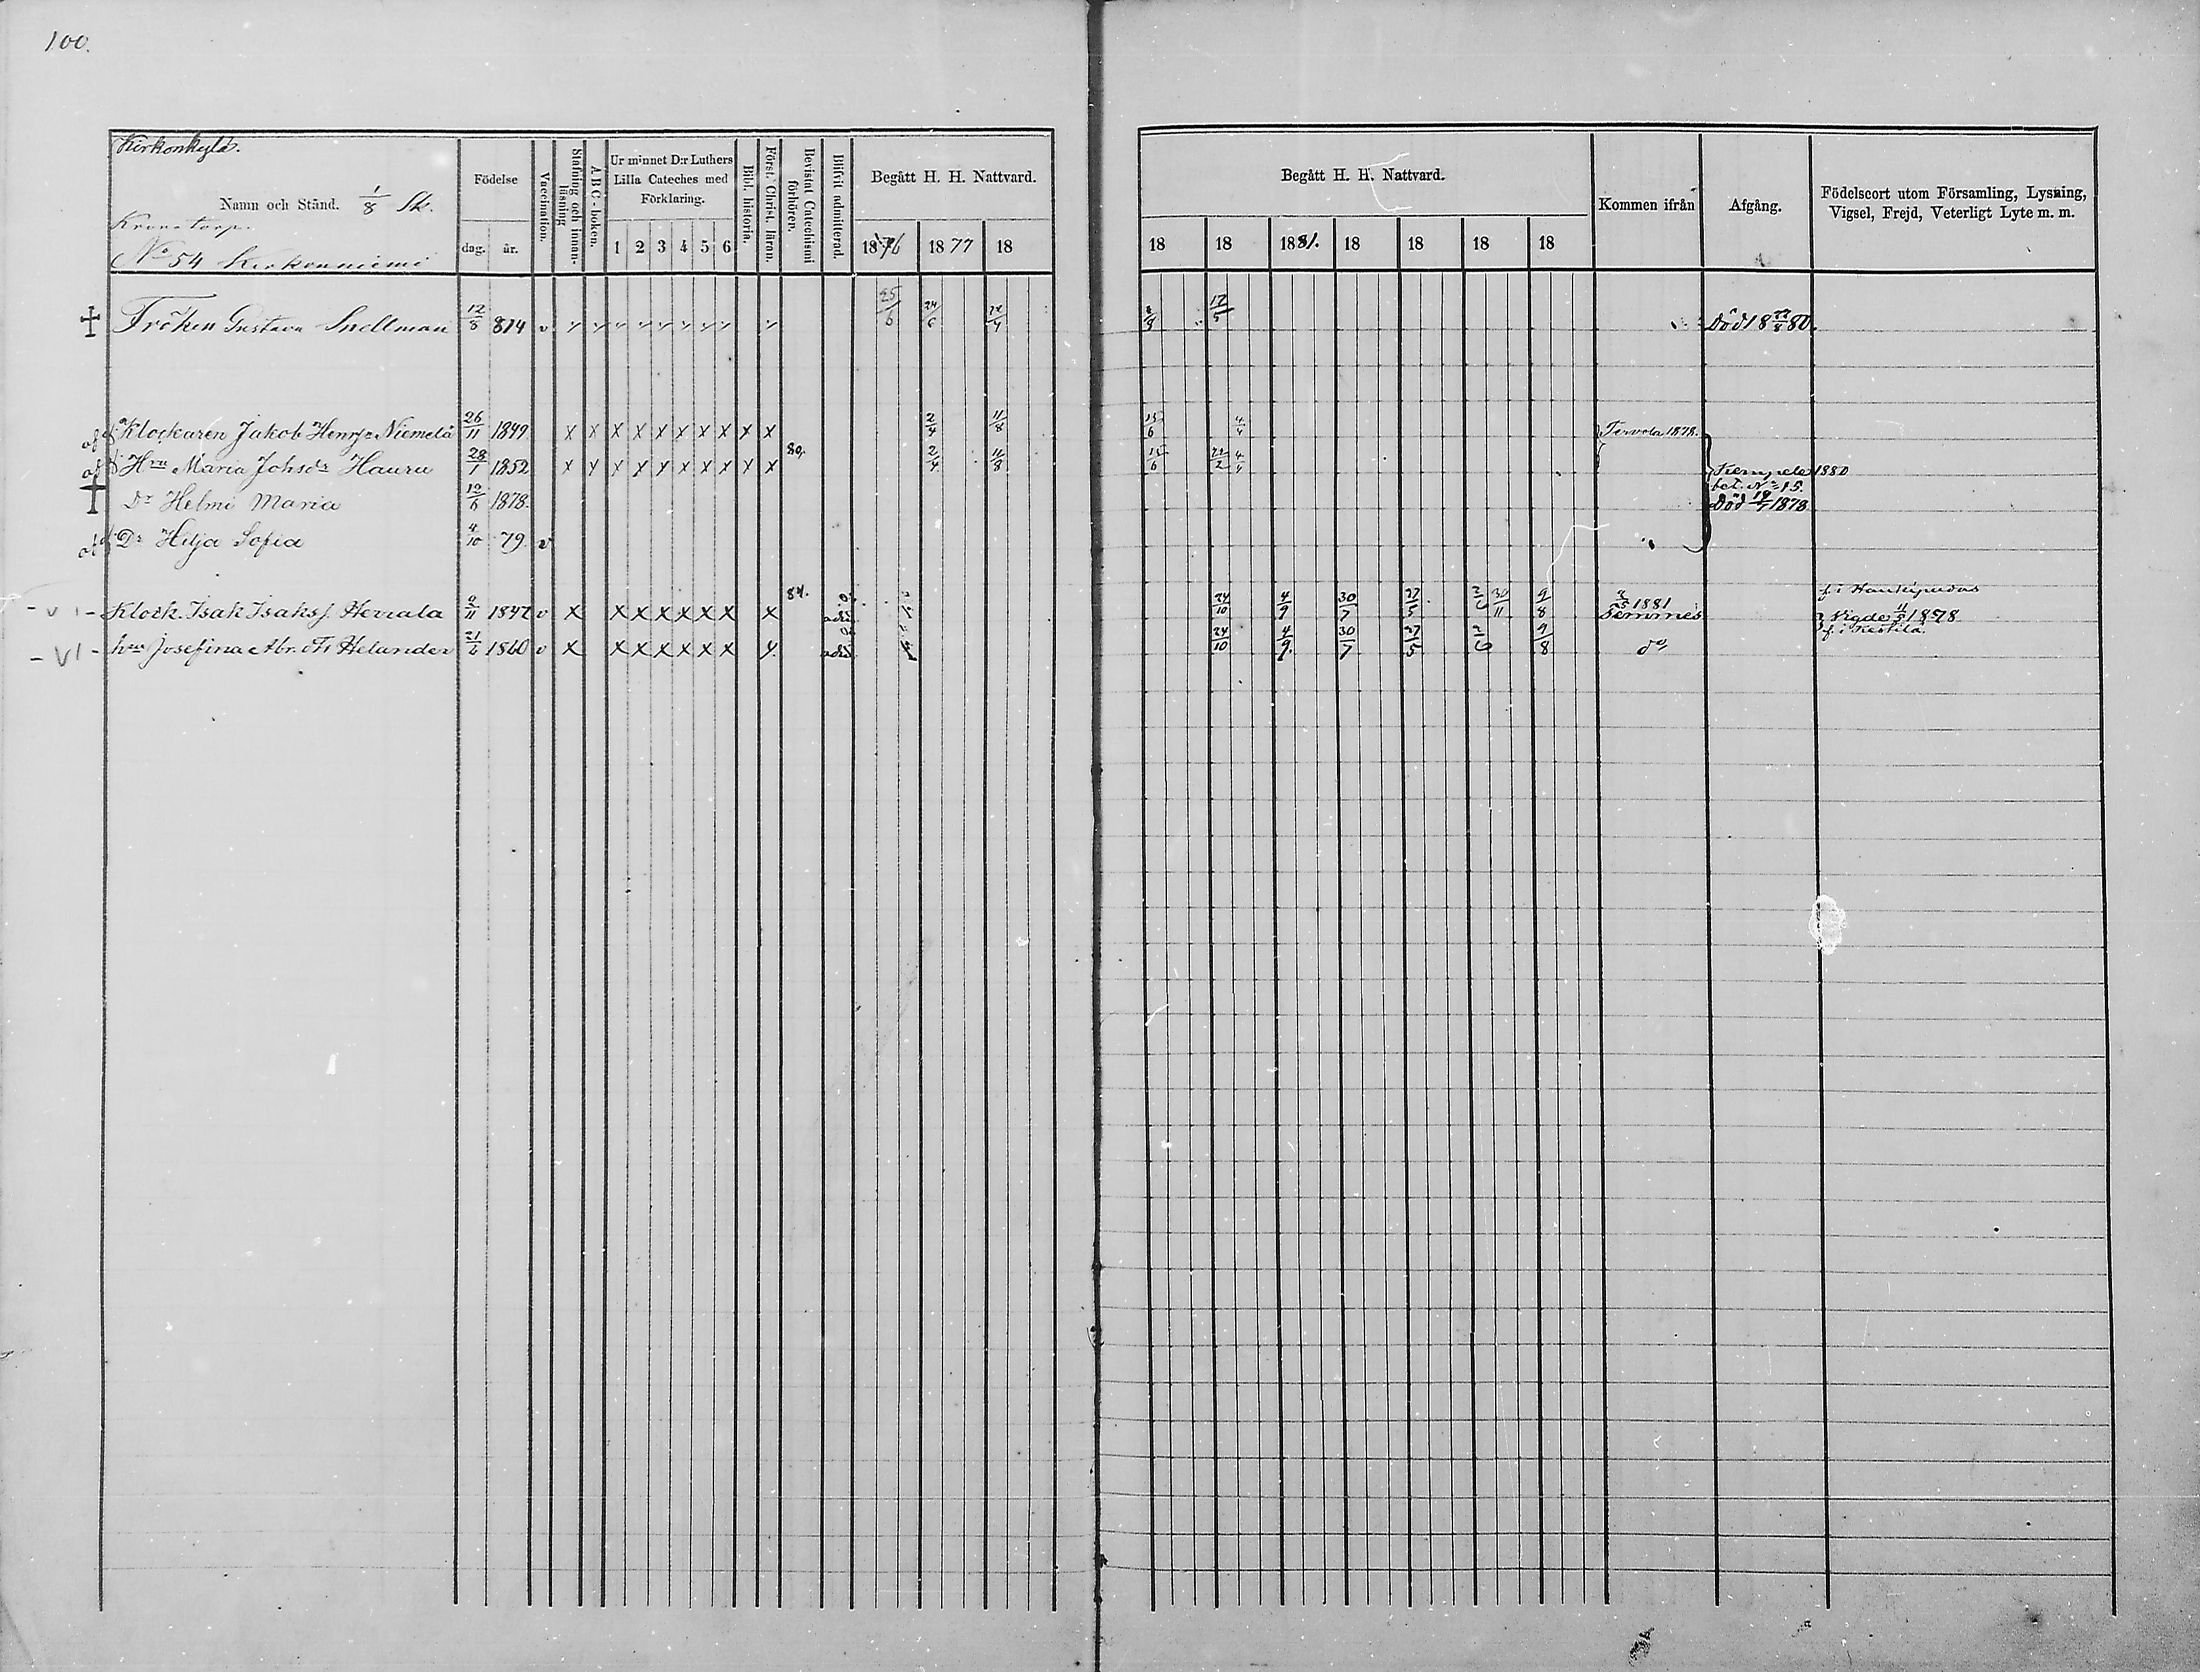 100.
Kirkonkylä.
Namn och Stånd. 1/8 Sk.
Kronotorp.
No 54 Kirkonniemi
Födelse
dag. år.
Vaccination.
Stafning och innanläsning
A B C - boken.
Ur minnet D:r Luthers Lilla Cateches med Förklaring.
1 2 3 4 5 6
Bibl. historia.
Först. Christ. läran.
Bevistat Catechismi förhörer.
Blifvit admitterad.
Begått H. H. Nattvard.
1876 1877 18
Begått H. H. Nattvard.
18 18 1881. 18 18 18 18
Kommen ifrån
Afgång.
Födelseort utom Församling, Lysning, Vigsel, Frejd, Veterligt Lyte m. m.
Fröken Gustava Snellman 12/8 814 v 25/6 24/6 17/5 Död 1880.
Klockaren Jakob Henrs. Niemelä 26/11 1849 x x x x x x x x x x 2/4 11/8 15/6 4/4 Tervola 1878.
Hru Maria Johsdr Hauru 28/1 1852 x x x x x x x x x x 80. 2/4 11/8 15/6 4/4 Kempele 1880
bet. No 15.
Dr Helmi Maria 12/6 1878. Död 19/7 1878
Dr Hilja Sofia 4/10 79. v
Klock. Isak Isaksf. Herrala 9/11 1847 v x x x x x x x x 84. 24/10 4/9 30/7 27/5 2/6 30/11 9/8 1881 Temmes f. i Haukipudas
Vigde 1878
hru Josefina Abr. dr Helander 21/6 1860 v x x x x x x x 24/10 4/9 30/7 27/5 2/6 9/8 do f. i Kestilä.